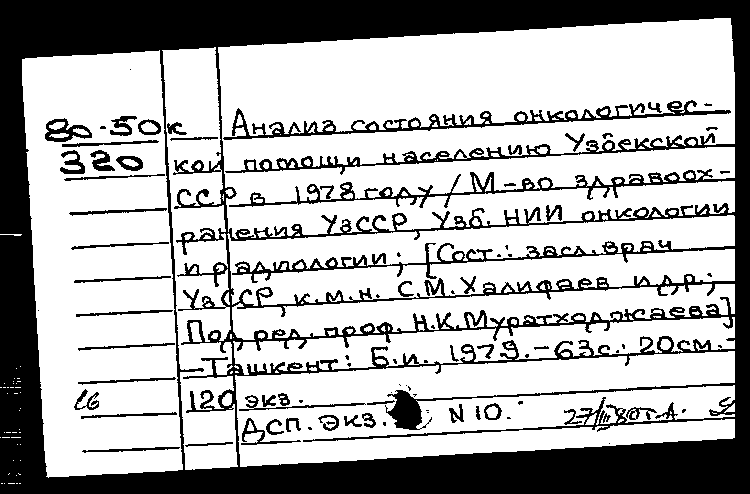 80-50к Анализ состояния онкологичес-
320 кой помощи населению Узбекской
ССР в 1978 году / М-во здравоох-
ранения УзССР, Узб. НИИ онкологии
и радиологии; [Сост.: засл. врач
УзССР, к.м.н. С.М. Халифаев и др.;
Под ред. проф. Н.К. Муратходжаева]
– Ташкент: Б.и., 1979. – 63 с.; 20 см. –
16 120 экз.
ДСП. экз. N 10. 27/III 80г.